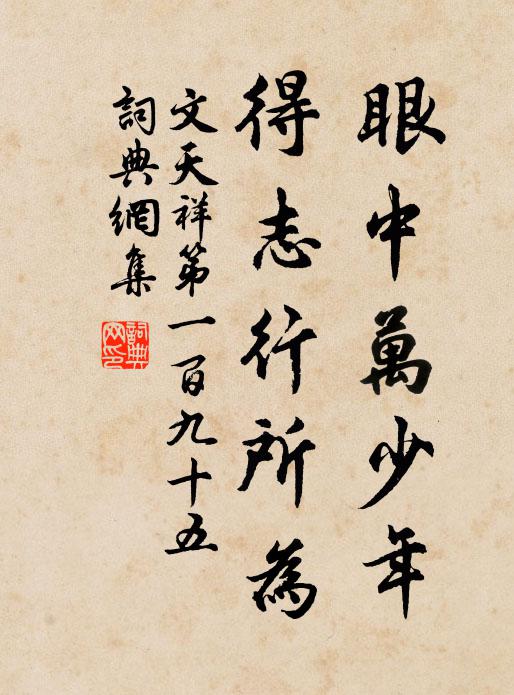 眼中萬少年
得志行所為
文天祥第一百九十五
詞典網集
詞典
网印